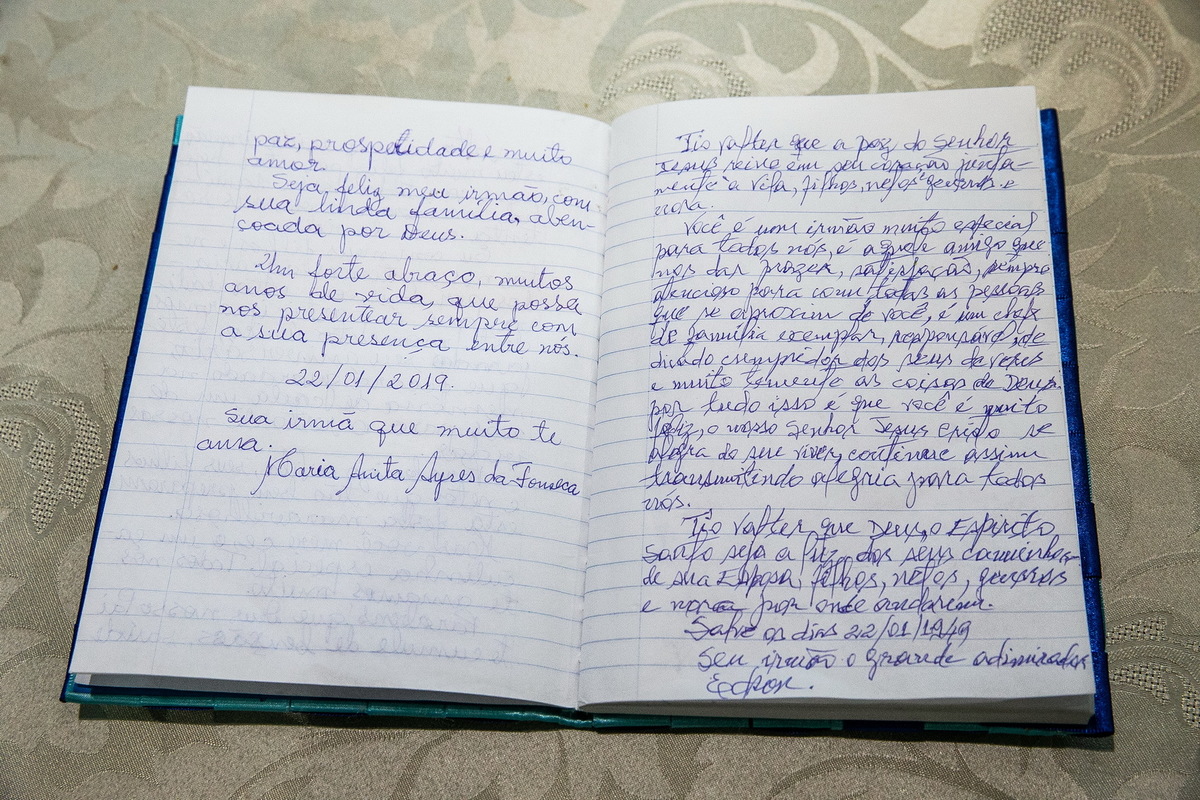 paz, prosperidade e muito
amor.
Seja feliz meu irmão, com
sua linda família, aben-
çoada por Deus.
Um forte abraço, muitos
anos de vida, que possa
nos presentear sempre com
a sua presença entre nós.
22/01/2019.
Sua irmã que muito te
ama.
Maria Anita Ayres da Fonseca
Tio Valter que a paz do Senhor
Jesus reine em seu coração junta-
mente a Vila, filhos, netos genros e
nora.
Você é um irmão muito especial
para todos nós, é aquele amigo que
nos dar prazer, satisfação, sempre
atencioso para com todas as pessoas
que se aproxim de você, é um chefe
de família exemplar, responsável, de
dicado cumpridor dos seus deveres
e muito temente as coisas de Deus.
por tudo isso é que você é muito
feliz, o nosso Senhor Jesus Cristo se
alegra do seu viver, continue assim
transmitindo alegria para todos
nós.
Tio Valter que Deus, o Espirito
Santo seja a luz dos seus caminhos
de sua Esposa, filhos, netos, genros
e nora por onde andarem.
Salve os dias 22/01/1949
Seu irmão o grande adimirador